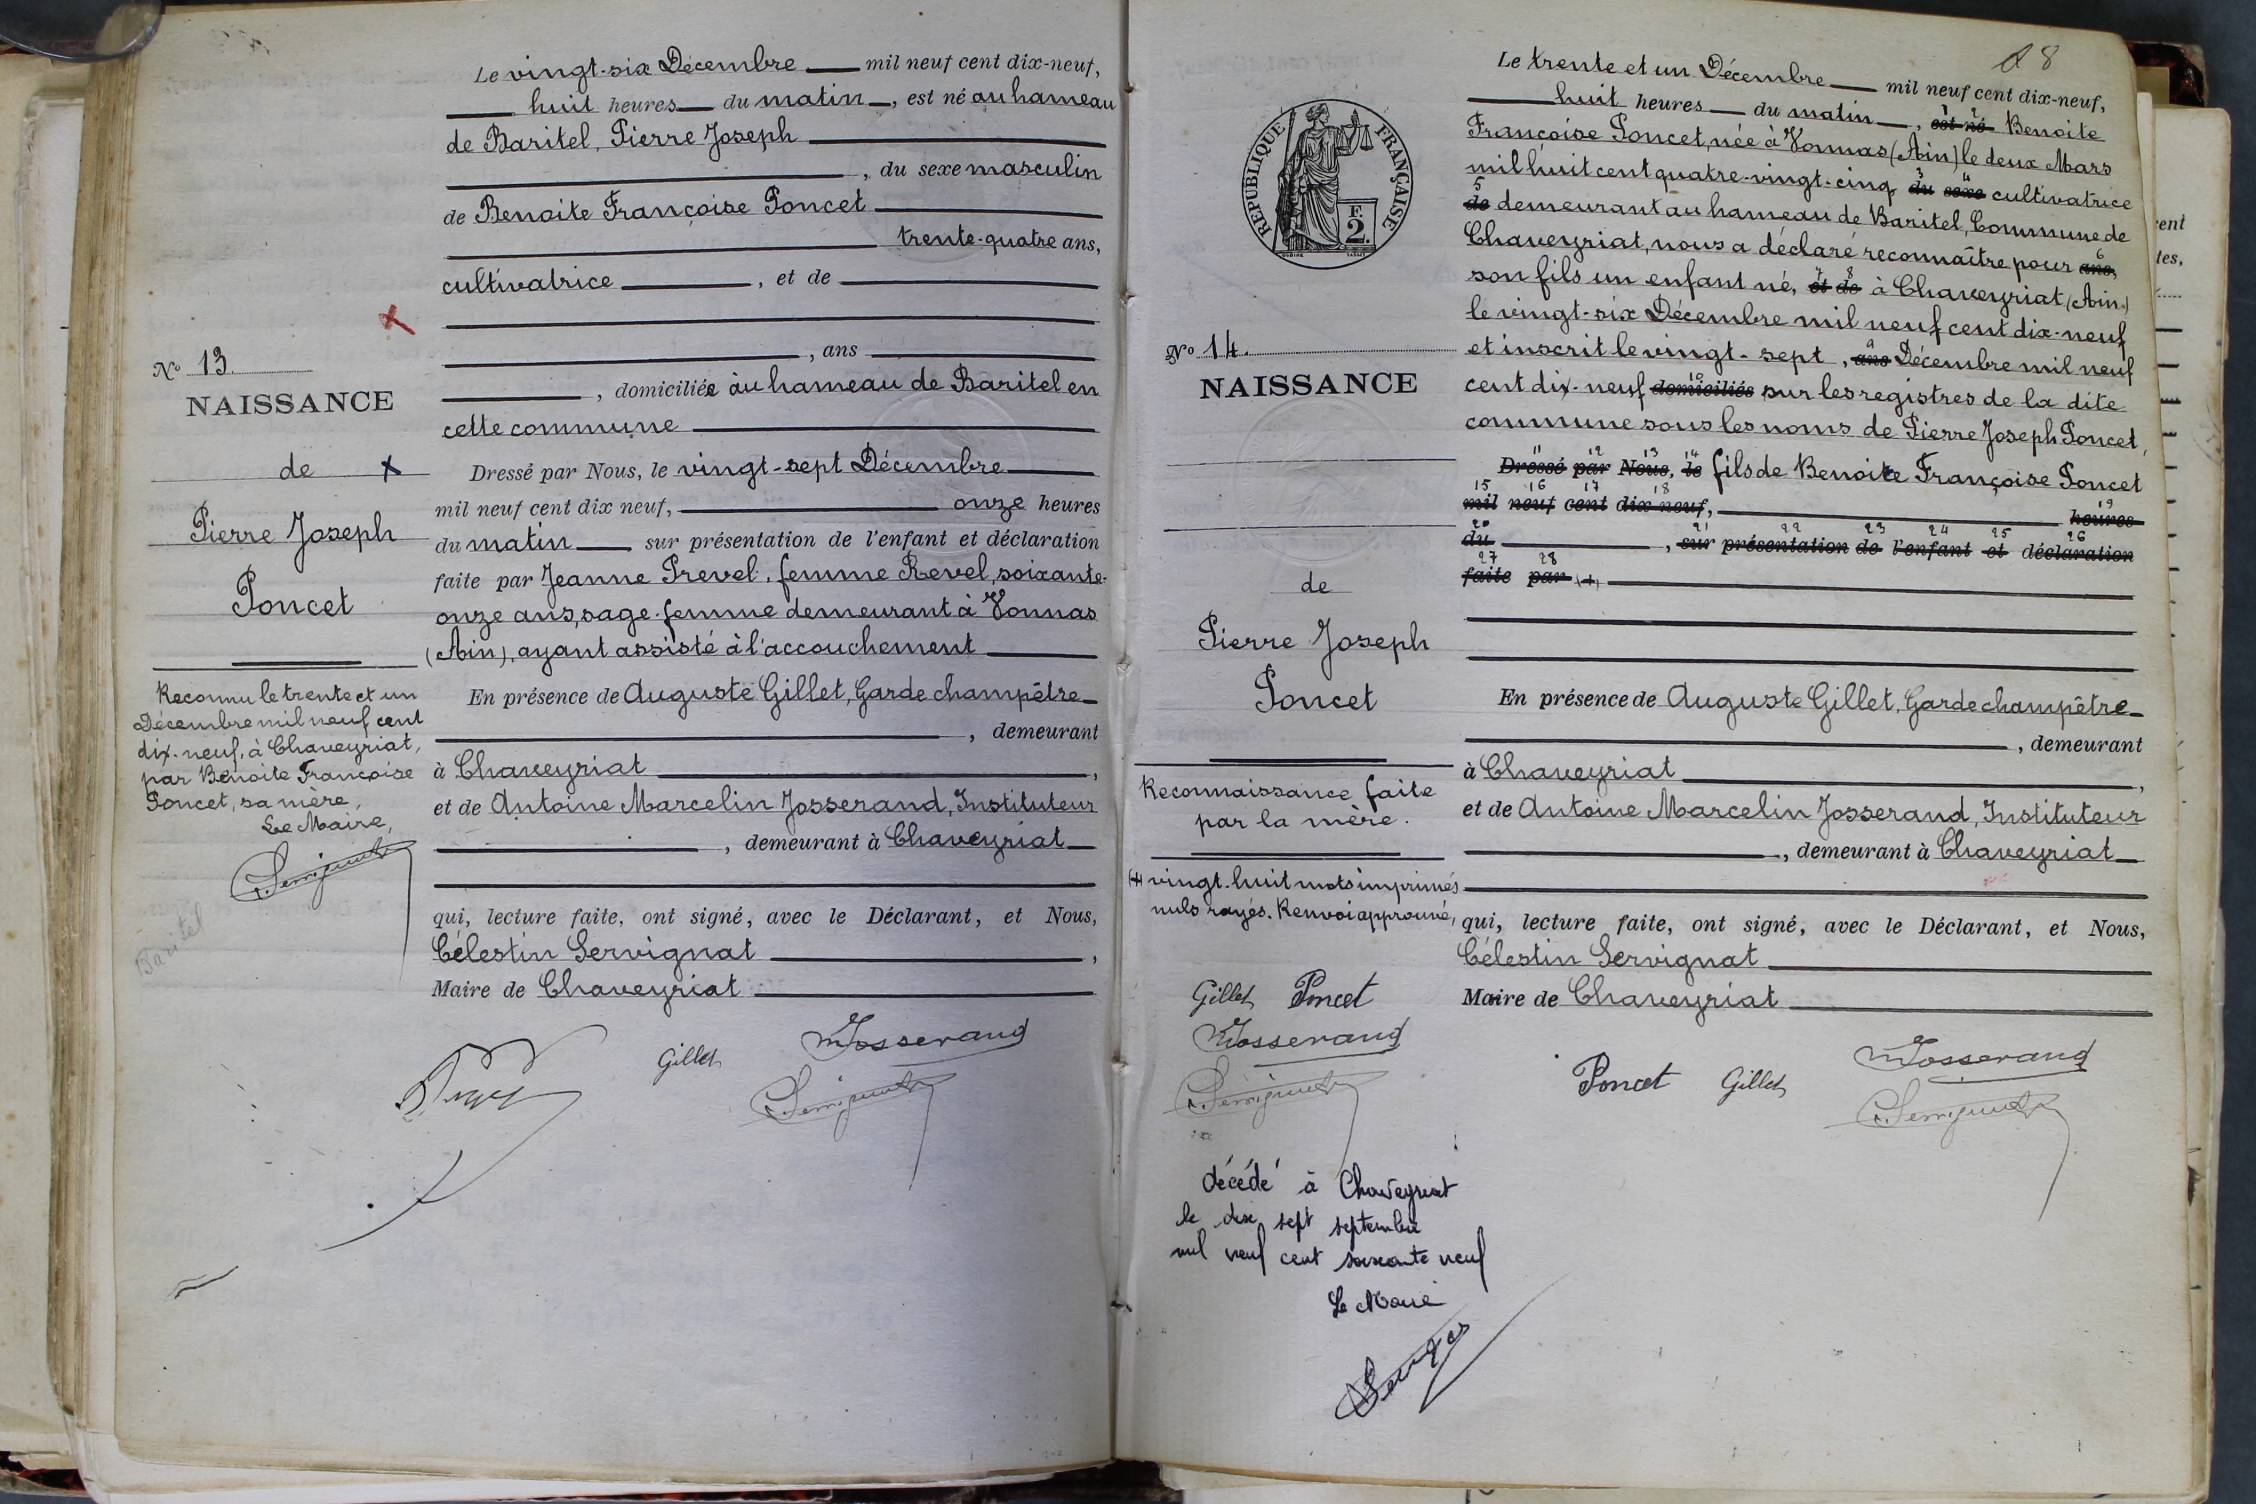 Le vingt-six Décembre mil neuf cent dix-neuf,
huit heures du matin, est né au hameau
de Baritel, Pierre Joseph
, du sexe masculin
de Benoite Françoise Poncet
trente-quatre ans,
cultivatrice, et de
, ans
, domiciliée au hameau de Baritel en
cette commune
Dressé par Nous, le vingt-sept Décembre
mil neuf cent dix neuf, onze heures
du matin sur présentation de l'enfant et déclaration
faite par Jeanne Prevel, femme Revel, soixante-
onze ans, sage-femme demeurant à Vonnas
(Ain), ayant assisté à l'accouchement
En présence de Auguste Gillet, Garde champêtre
, demeurant
à Chaveyriat,
et de Antoine Marcelin Josserand, Instituteur
, demeurant à Chaveyriat
qui, lecture faite, ont signé, avec le Déclarant, et Nous,
Célestin Servignat,
Maire de Chaveyriat
Gillet
Josserand
Servignat
No 13
NAISSANCE
de
Pierre Joseph
Poncet
Reconnu le trente et un
Décembre mil neuf cent
dix-neuf, à Chaveyriat,
par Benoite Françoise
Poncet, sa mère,
Le Maire,
Servignat
Baritel
18
Le trente et un Décembre mil neuf cent dix-neuf,
huit heures du matin, est né Benoite
1 2
Françoise Poncet, née à Vonnas (Ain) le deux Mars
mil huit cent quatre-vingt-cinq du sexe cultivatrice
3 4
de demeurant au hameau de Baritel, Commune de
5
Chaveyriat, nous a déclaré reconnaître pour ans,
6
son fils un enfant né, et de à Chaveyriat (Ain)
7 8
le vingt-six Décembre mil neuf cent dix-neuf
et inscrit le vingt-sept, ans Décembre mil neuf
9
cent dix-neuf domiciliés sur les registres de la dite
10
commune sous les noms de Pierre Joseph Poncet,
11 12 13 14
Dressé par Nous, le fils de Benoite Françoise Poncet
15 16 17 18
mil neuf cent dix neuf, heures
19
20 21 22 23 24 25 26
du, sur présentation de l'enfant et déclaration
27 28
faite par (+)
En présence de Auguste Gillet, Garde champêtre
, demeurant
à Chaveyriat,
et de Antoine Marcelin Josserand, Instituteur
, demeurant à Chaveyriat
qui, lecture faite, ont signé, avec le Déclarant, et Nous,
Célestin Servignat
Maire de Chaveyriat
Poncet Gillet
Josserand
Servignat
RÉPUBLIQUE FRANÇAISE
F.
2.
No 14.
NAISSANCE
de
Pierre Joseph
Poncet
Reconnaissance faite
par la mère.
(+) vingt-huit mots imprimés
nuls rayés. Renvoi approuvé,
Gillet Poncet
Josserand
Servignat
décédé à Chaveyriat
le dix sept septembre
mil neuf cent soixante neuf
Le Maire